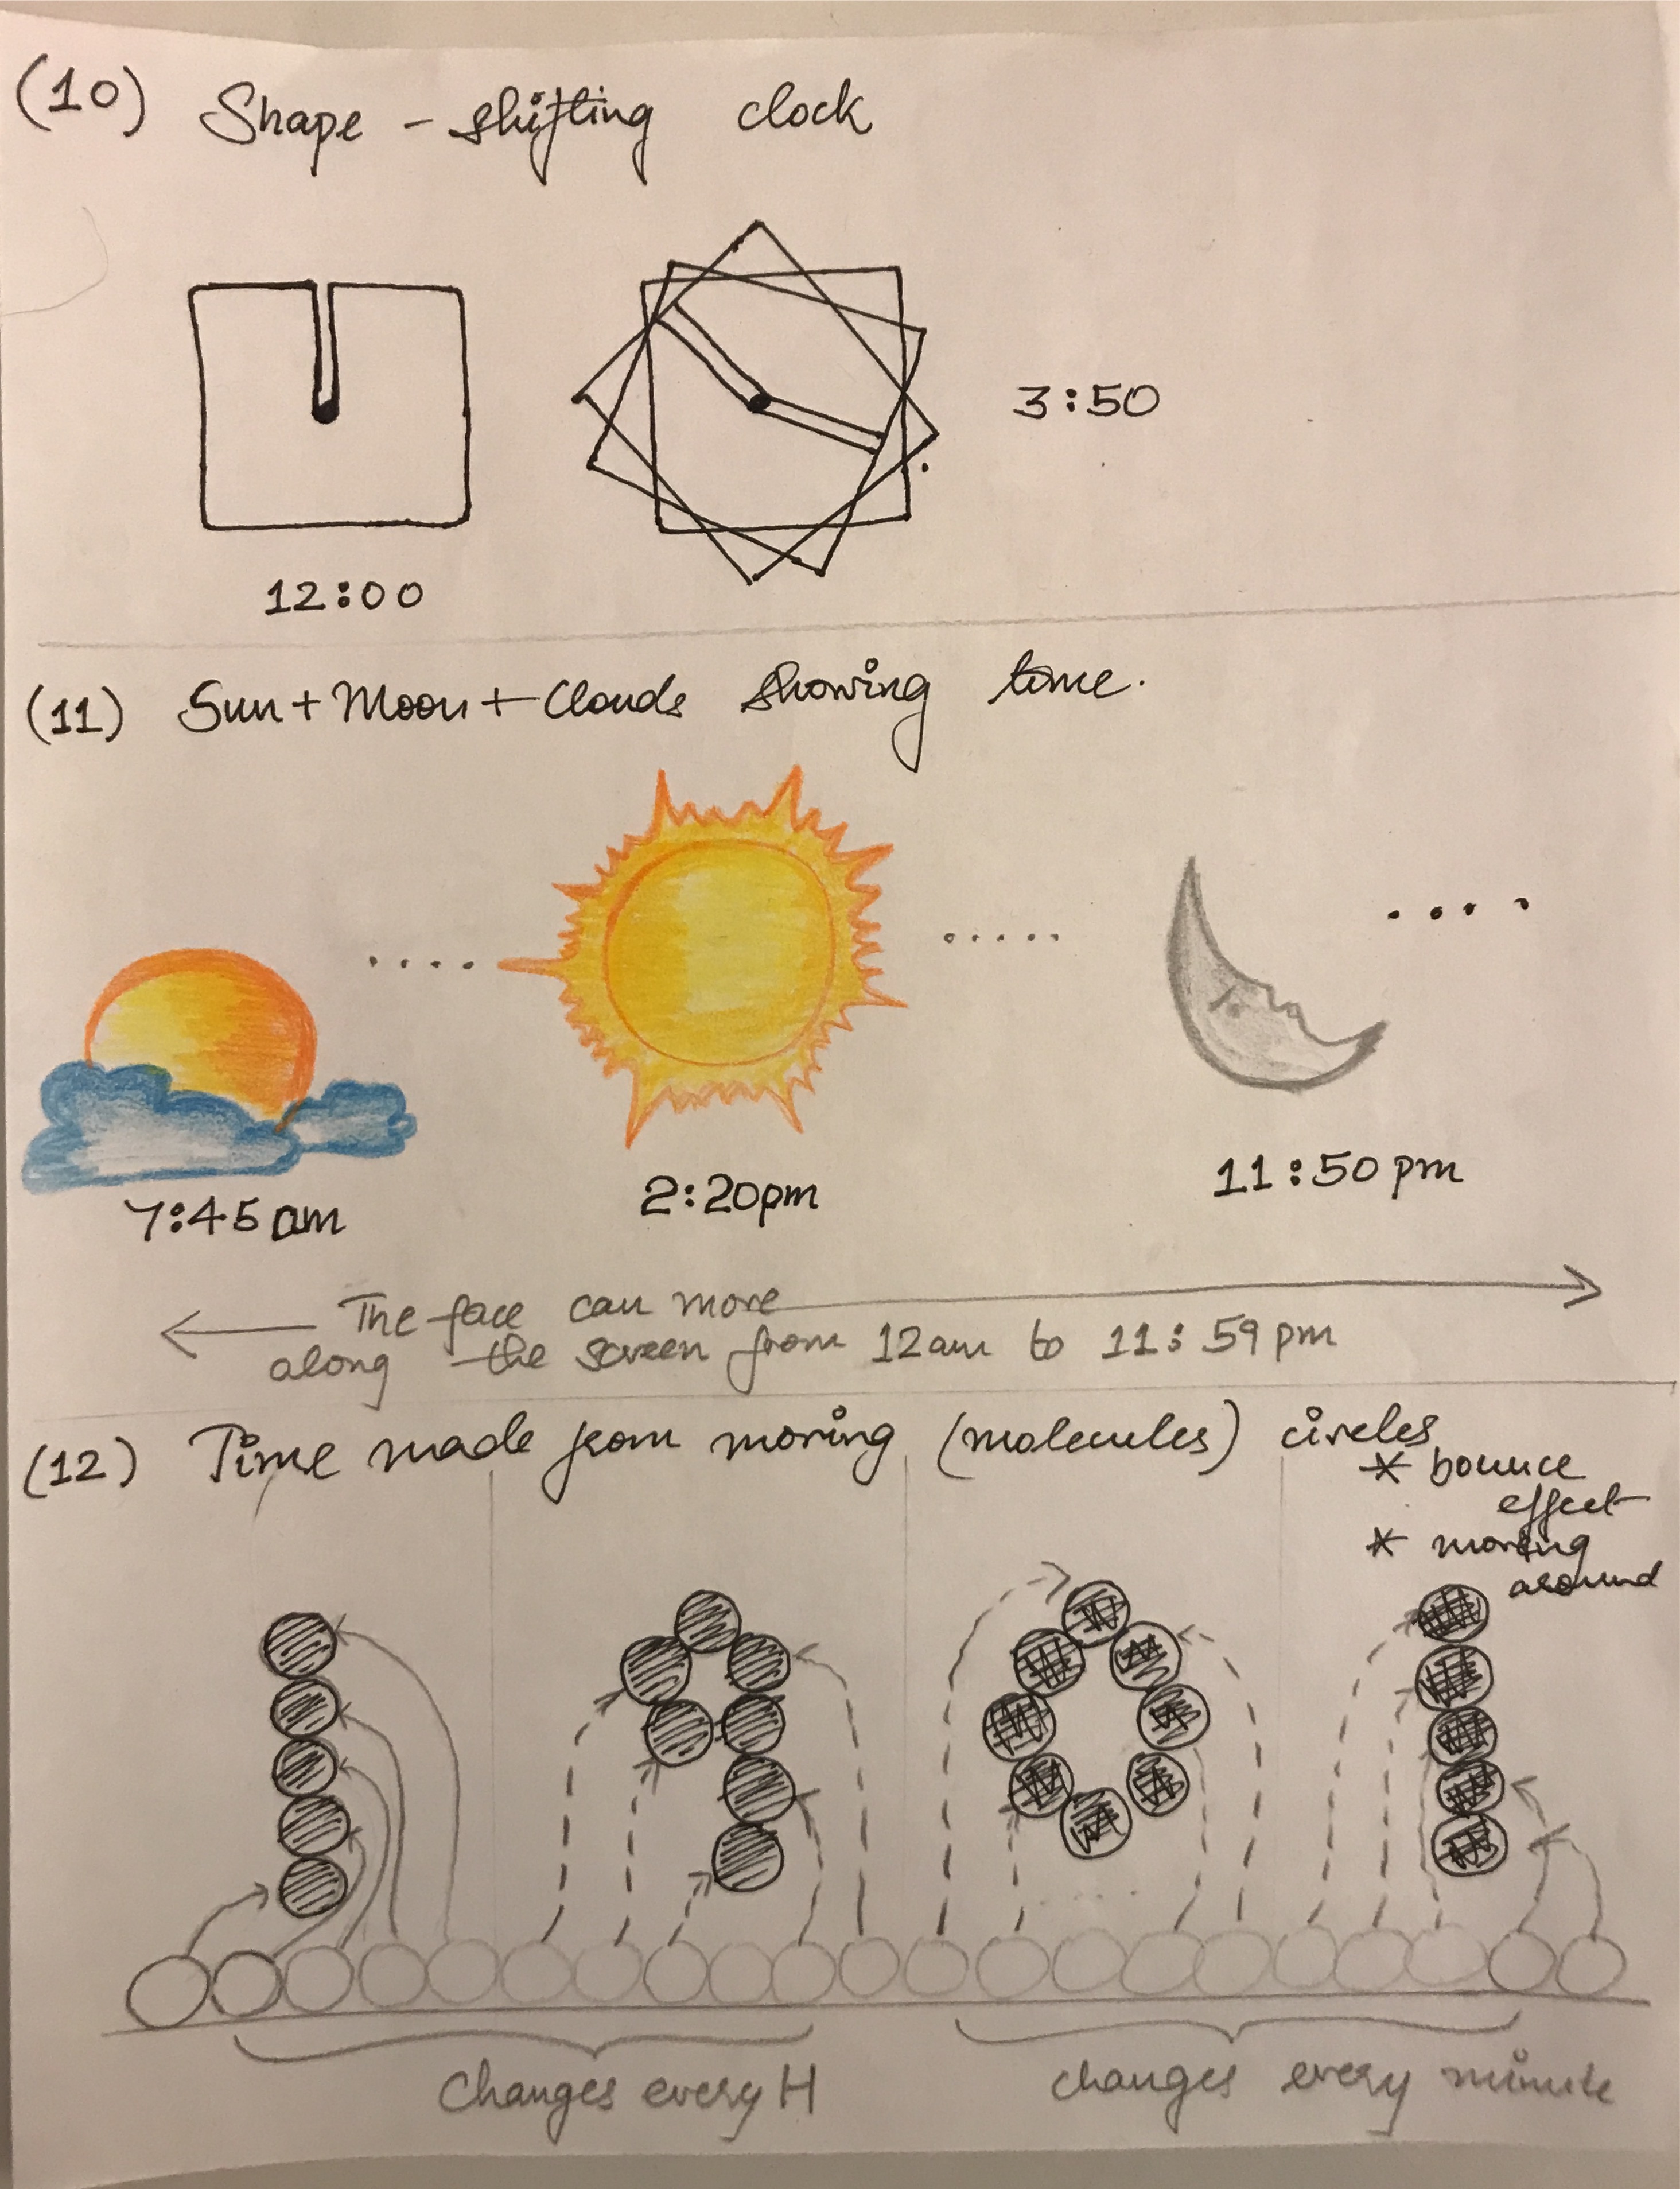 (10) Shape - shifting clock
3:50
12:00
(11) Sun + Moon + Clouds showing time.
7:45 am
2:20pm
11:50 pm
The face can move
along the screen from 12am to 11:59 pm
(12) Time made from moving (molecules) circles
* bounce
effect
* moving
around
changes every H
changes every minute